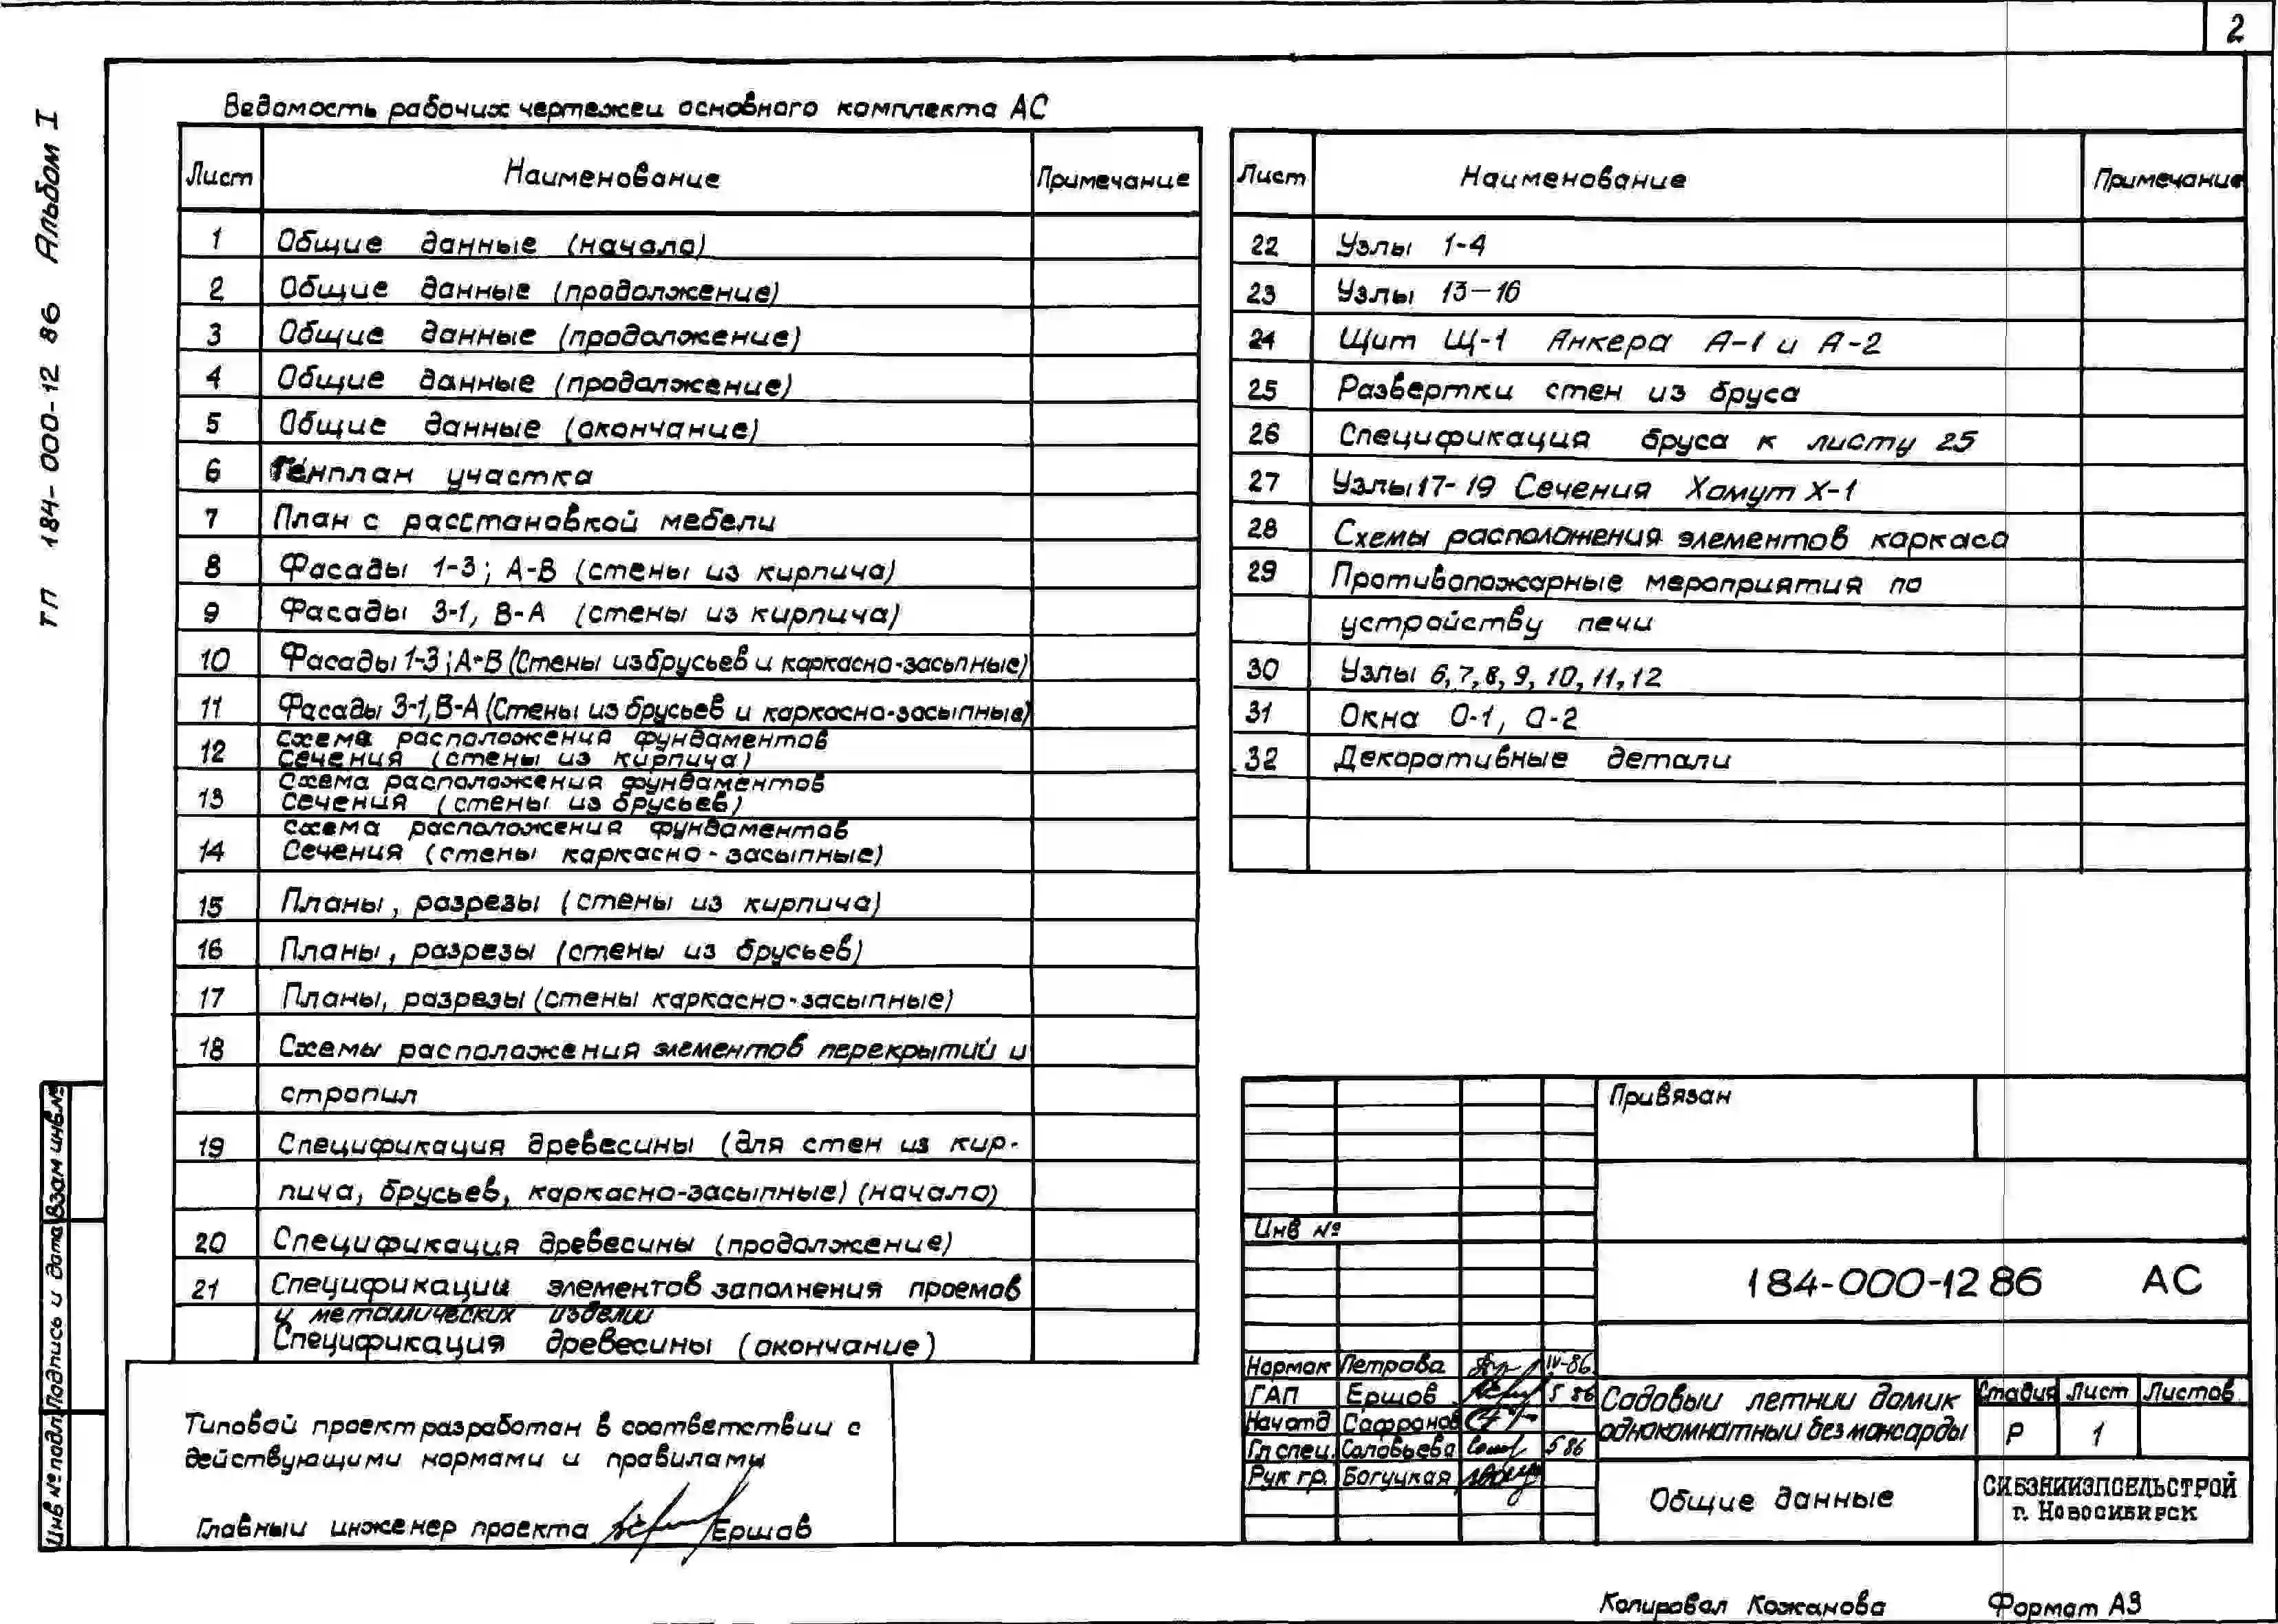 2
ТП 184-000-12 86 Альбом I
Ведомость рабочих чертежей основного комплекта АС
Лист Наименование Примечание
1 Общие данные (начало)
2 Общие данные (продолжение)
3 Общие данные (продолжение)
4 Общие данные (продолжение)
5 Общие данные (окончание)
6 Генплан участка
7 План с расстановкой мебели
8 Фасады 1-3; А-В (стены из кирпича)
9 Фасады 3-1, В-А (стены из кирпича)
10 Фасады 1-3; А-В (Стены из брусьев и каркасно-засыпные)
11 Фасады 3-1, В-А (Стены из брусьев и каркасно-засыпные)
12 Схема расположения фундаментов
Сечения (стены из кирпича)
13 Схема расположения фундаментов
Сечения (стены из брусьев)
14 Схема расположения фундаментов
Сечения (стены каркасно-засыпные)
15 Планы, разрезы (стены из кирпича)
16 Планы, разрезы (стены из брусьев)
17 Планы, разрезы (стены каркасно-засыпные)
18 Схемы расположения элементов перекрытий и
стропил
19 Спецификация древесины (для стен из кир-
пича, брусьев, каркасно-засыпные) (начало)
20 Спецификация древесины (продолжение)
21 Спецификации элементов заполнения проемов
и металлических изделий
Спецификация древесины (окончание)
Лист Наименование Примечание
22 Узлы 1-4
23 Узлы 13-16
24 Щит Щ-1 Анкера А-1 и А-2
25 Развертки стен из бруса
26 Спецификация бруса к листу 25
27 Узлы 17-19 Сечения Хомут Х-1
28 Схемы расположения элементов каркаса
29 Противопожарные мероприятия по
устройству печи
30 Узлы 6, 7, 8, 9, 10, 11, 12
31 Окна О-1, О-2
32 Декоративные детали
Типовой проект разработан в соответствии с
действующими нормами и правилами
Главный инженер проекта Ершов
Взам инв.№
Подпись и дата
Инв № подл
Привязан
Инв №
184-000-12 86 АС
Нормак Петрова IV-86
ГАП Ершов 5 86
Нач отд Сафронов
Гл спец. Соловьева 5 86
Рук гр. Богуцкая
Садовый летний домик
однокомнатный без мансарды
Стадия Лист Листов
Р 1
Общие данные
СИБЗНИИЭПСЕЛЬСТРОЙ
г. Новосибирск
Копировал Кожанова Формат А3